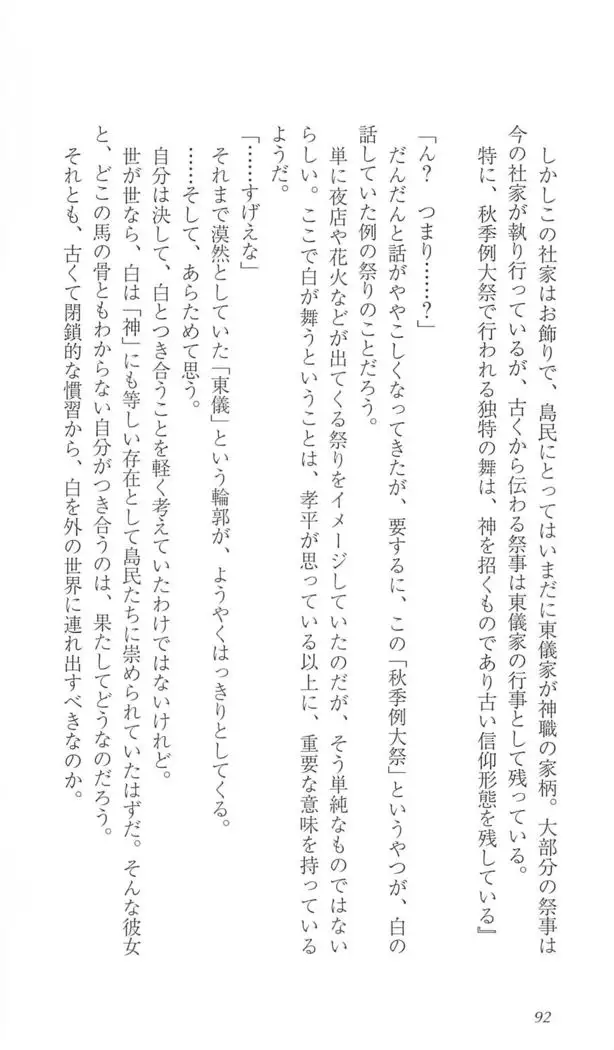 しかしこの社家はお飾りで、島民にとってはいまだに東儀家が神職の家柄。大部分の祭事は
今の社家が執り行っているが、古くから伝わる祭事は東儀家の行事として残っている。
特に、秋季例大祭で行われる独特の舞は、神を招くものであり古い信仰形態を残している』
「ん？　つまり……？」
だんだんと話がややこしくなってきたが、要するに、この「秋季例大祭」というやつが、白の
話していた例の祭りのことだろう。
単に夜店や花火などが出てくる祭りをイメージしていたのだが、そう単純なものではない
らしい。ここで白が舞うということは、孝平が思っている以上に、重要な意味を持っている
ようだ。
「……すげえな」
それまで漠然としていた「東儀」という輪郭が、ようやくはっきりとしてくる。
……そして、あらためて思う。
自分は決して、白とつき合うことを軽く考えていたわけではないけれど。
世が世なら、白は「神」にも等しい存在として島民たちに崇められていたはずだ。そんな彼女
と、どこの馬の骨ともわからない自分がつき合うのは、果たしてどうなのだろう。
それとも、古くて閉鎖的な慣習から、白を外の世界に連れ出すべきなのか。
92